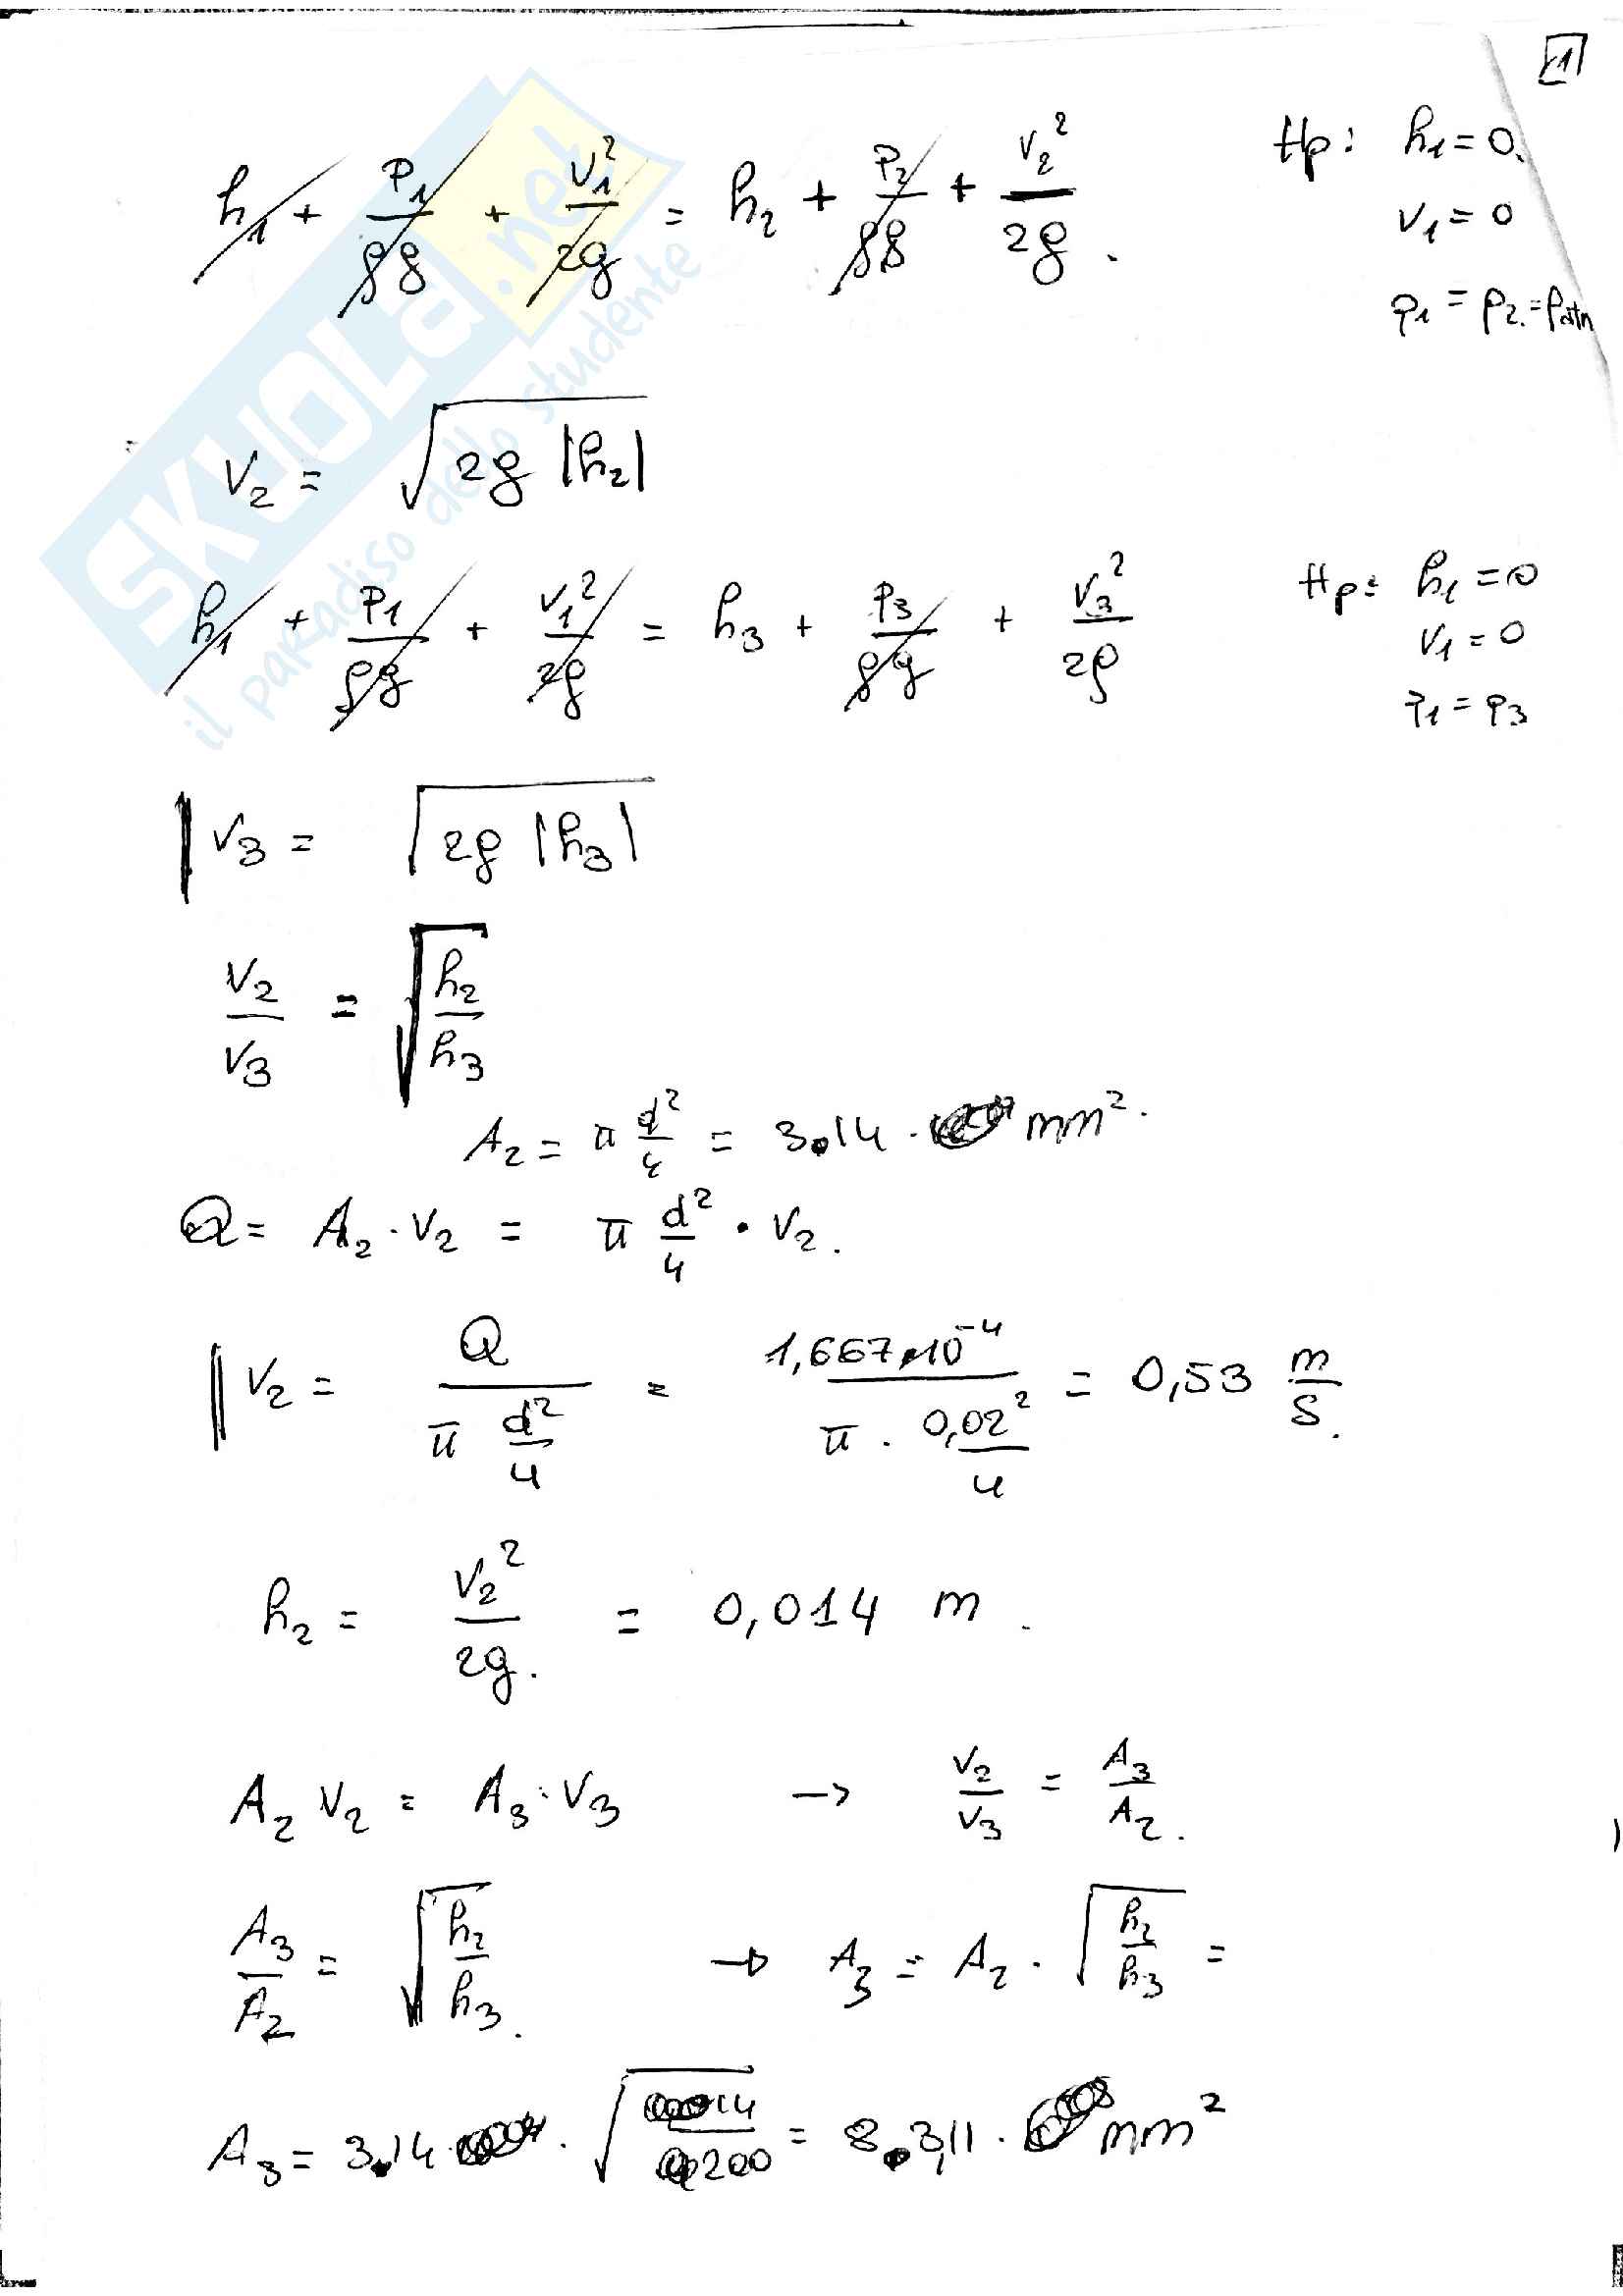 1
h₁ + p₁/ρg + v₁²/2g = h₂ + p₂/ρg + v₂²/2g . Hp: h₁ = 0.
v₁ = 0
p₁ = p₂ = patm
SKUOLA.net
il paradiso dello studente
v₂ = √(2g |h₂|)
h₁ + p₁/ρg + v₁²/2g = h₃ + p₃/ρg + v₃²/2g Hp: h₁ = 0
v₁ = 0
p₁ = p₃
v₃ = √(2g |h₃|)
v₂/v₃ = √(h₂/h₃)
A₂ = π d²/4 = 3.14 · mm².
Q = A₂ · v₂ = π d²/4 · v₂.
v₂ = Q/(π d²/4) = 1,667·10⁻⁴/(π · 0,02²/4) = 0,53 m/s.
h₂ = v₂²/2g. = 0,014 m.
A₂ v₂ = A₃ · v₃ → v₂/v₃ = A₃/A₂.
A₃/A₂ = √(h₂/h₃). → A₃ = A₂ · √(h₂/h₃) =
A₃ = 3.14 · √(14/200) = 8.3,11 · mm²